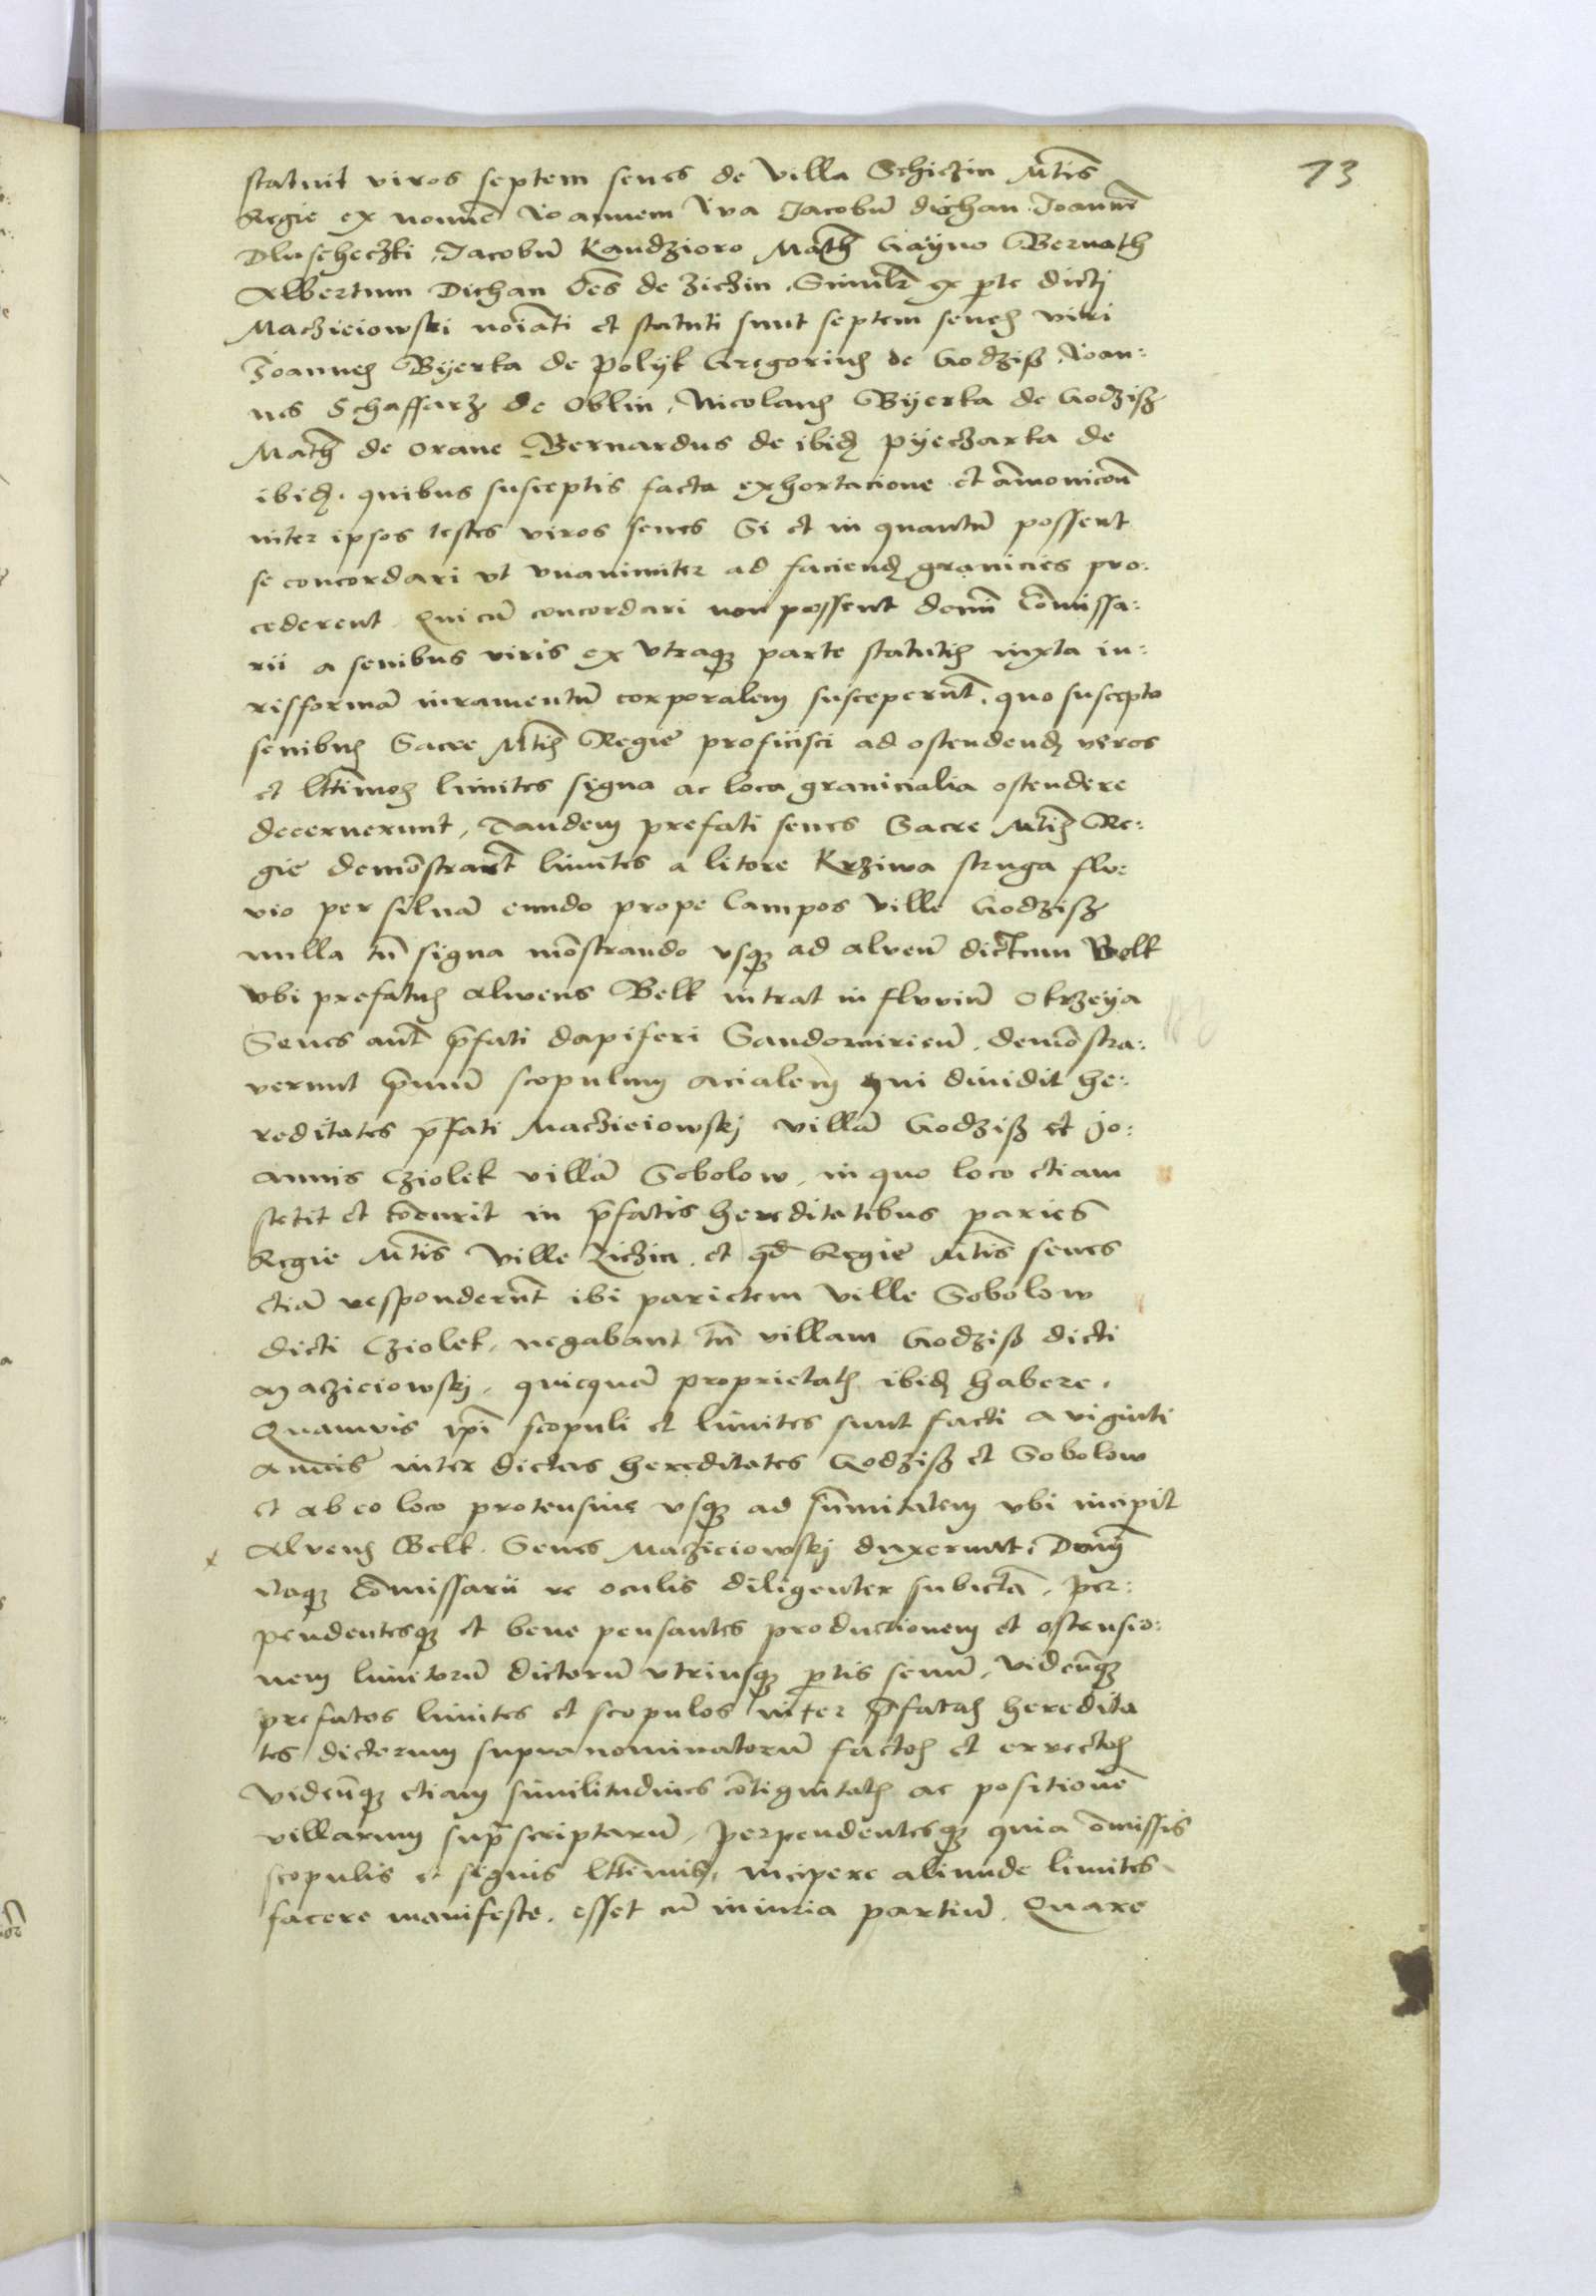 73
statuit viros septem senes de villa Schiczin Mtis
Regie ex nomine Ioannem Iva Iacobū dichan Ioannē
Dluscheczki Iacobū Kandzioro Math Gayno Bernath
Albertum Dichan oēs de Ziczin. Similr ex pte dicti
Macziciowski noiati et statuti sunt septem senes viri
Ioannes Byerka de Polyk Gregorius de Godziß Ioan:
nes Schaffarz de Oblin, Nicolaus Byerka de Godzisz
Math de orane Bernardus de ibid pyeczarka de
ibid. quibus susceptis facta exhortacione et amonicōe
inter ipsos testes viros senes Si et in quantū possent
se concordari ut unanimiter ad faciend granicies pro:
cederent Qui cū concordari non possent domini Cōmissa:
rii a senibus viris ex utraq parte statutis iuxta iu:
risformā iuramentū corporalem susceperūt. quo suscepto
senibus Sacre Mtis Regie proficisci ad ostendend veros
et lttimos limites signa ac loca granicialia ostendere
decernerunt, Tandem prefati senes Sacre Mtis Re:
gie demōstrarūt limites a litore Krziwa struga flu:
vio per siluā eundo prope campos ville Godzisz
nulla tn signa mōstrando vsq ad alveū dictum Belk
vbi prefatus alveus Belk intrat in fluviū Okrzeya
Senes aut pfati dapiferi Sandomirieñ. demōstra:
verunt primū scopulum acialem qui dividit he:
reditates pfati Macziciowskj villā Godziß et Jo:
annis Cziolek villā Sobolow, in quo loco etiam
stetit et in pfatis hereditatibus paries
Regie Mtis Ville Ziczin. et qd Regie Mtis senes
etiā responderūt ibi parietem ville Sobolow
dicti Cziolek, negabant tn villam Godziß dicti
Macziciowskj, quicquā proprietatis ibid habere.
Quamvis ipi scopuli et limites sunt facti a viginti
annis inter dictas hereditates Godziß et Sobolow
et ab eo loco protensive vsq ad summitatem vbi incipit
Alveus Belk. Senes Macziciowskj duxerunt. Domini
itaq Cōmissarii re oculis diligenter subiecta, per:
pendentesq et bene pensantes productionem et ostensio:
nem limitorū dictorū utriusq ptis senū, videntesq
prefatos limites et scopulos inter pfatas heredita
tes dictorum supranominatorū factos et errectos
videntesq etiam similitudines cōtiguitatis ac positionē
villarum suprascriptarū, perpendentesq quia ōmissis
scopulis et signis lttimis, incipere aliunde limites
facere manifeste. esset cū iniuria partiū. Quare